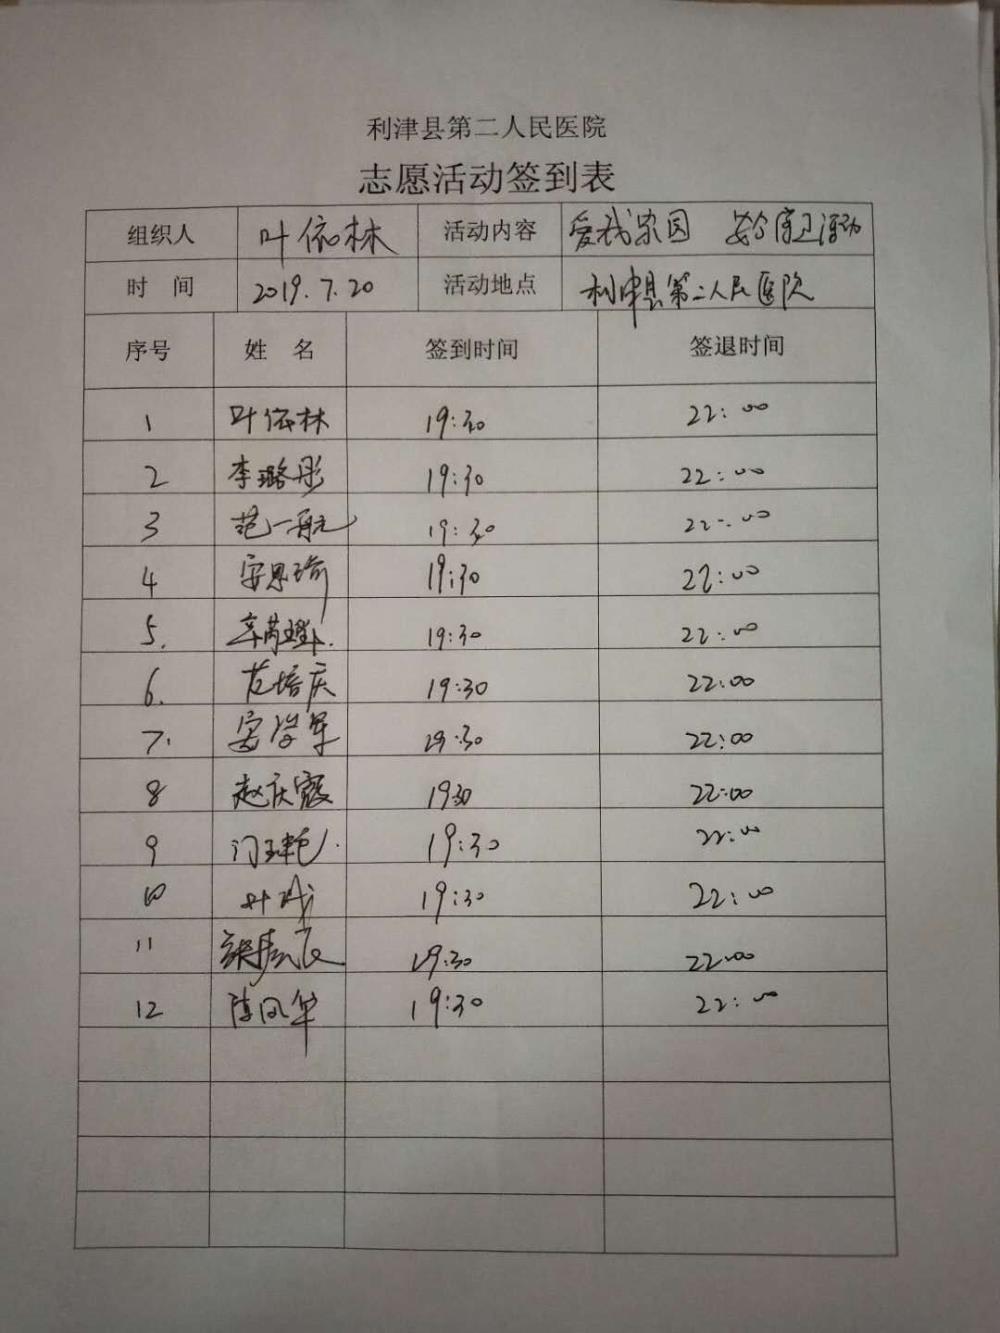 利津县第二人民医院
志愿活动签到表
组织人 叶依林 活动内容 爱我家园 安全守卫活动
时 间 2019.7.20 活动地点 利津县第二人民医院
序号 姓 名 签到时间 签退时间
1 叶依林 19:30 22:00
2 李璐彤 19:30 22:00
3 范一航 19:30 22:00
4 安思瑜 19:30 22:00
5. 19:30 22:00
6. 范培庆 19:30 22:00
7. 安学军 19:30 22:00
8 赵庆霞 1930 22:00
9 门 19:30 22:00
10 叶 19:30 22:00
11 19:30 22:00
12 陈凤华 19:30 22:00